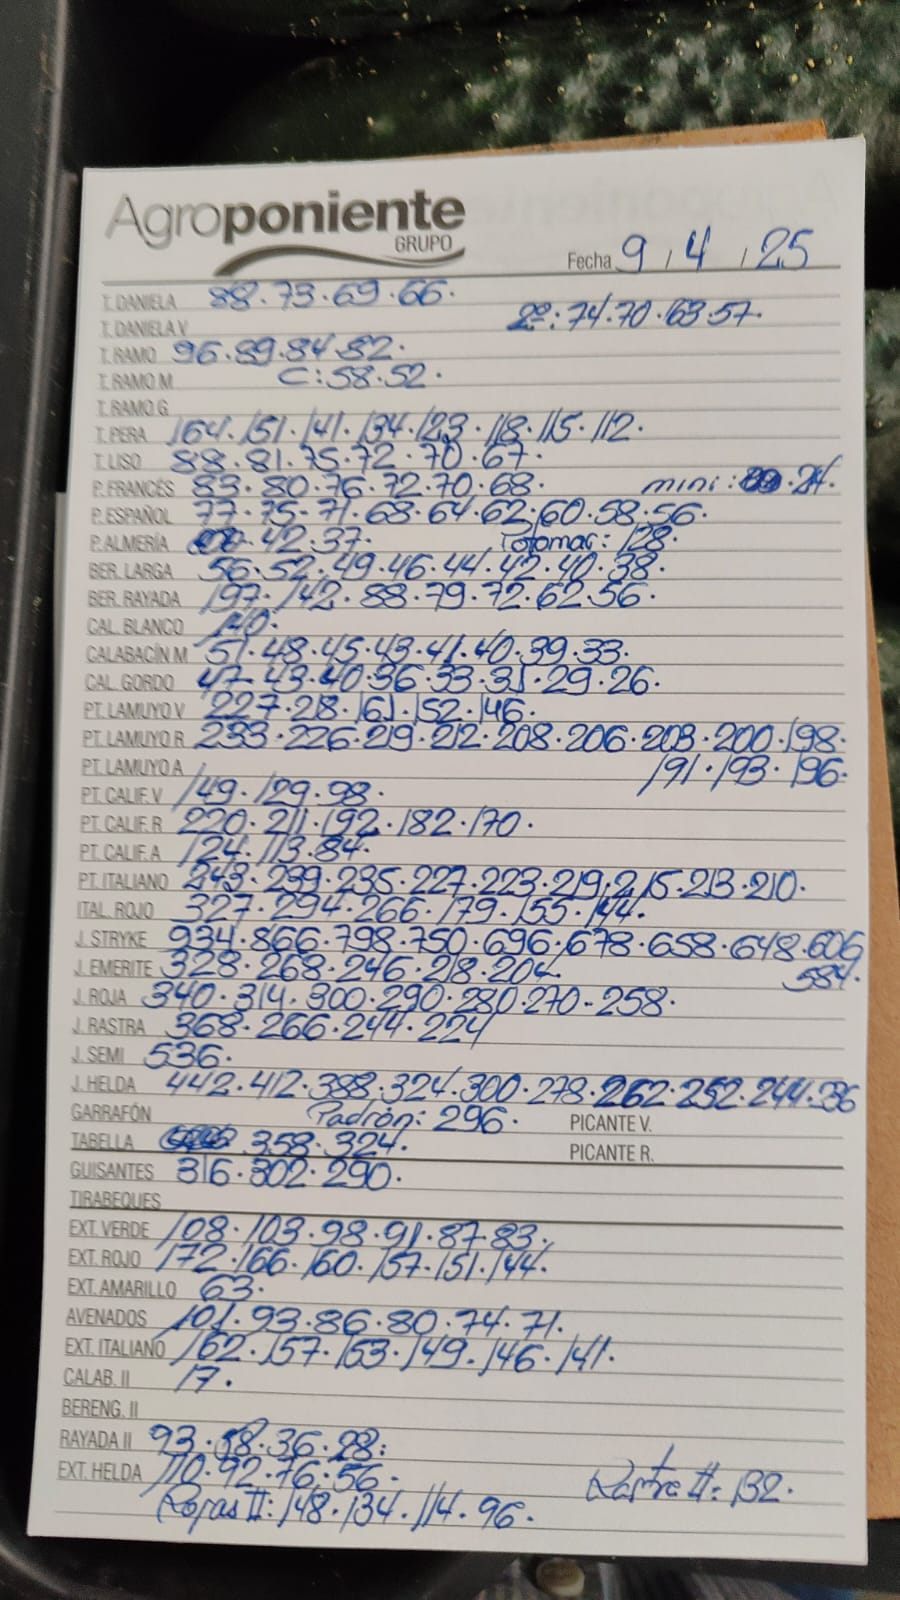 Agroponiente
GRUPO
Fecha 9 / 4 / 25
T. DANIELA 88.73.69.66.
T. DANIELA V 2º: 74.70.63.57.
T. RAMO 96.89.84.82.
T. RAMO M C: 58.52.
T. RAMO G
T. PERA 164.151.141.134.123.118.115.112.
T. LISO 88.81.75.72.70.67.
P. FRANCÉS 83.80.76.72.70.68. mini: .24.
P. ESPAÑOL 77.75.71.68.64.62.60.58.56.
P. ALMERÍA 42.37. 128.
BER. LARGA 56.52.49.46.44.42.40.38.
BER. RAYADA 197.142.88.79.72.62.56.
CAL. BLANCO 140.
CALABACÍN M 51.48.45.43.41.40.39.33.
CAL. GORDO 47.43.40.36.33.31.29.26.
PT. LAMUYO V 227.218.161.152.146.
PT. LAMUYO R 233.226.219.212.208.206.203.200.198.
PT. LAMUYO A 191.193.196.
PT. CALIF. V 149.129.98.
PT. CALIF. R 220.211.192.182.170.
PT. CALIF. A 124.113.84.
PT. ITALIANO 243.239.235.227.223.219.215.213.210.
ITAL. ROJO 327.294.266.179.155.144.
J. STRYKE 934.866.798.750.696.678.658.648.606
584.
J. EMERITE 328.268.246.218.204
J. ROJA 340.314.300.290.280.270-258.
J. RASTRA 368.266.244.224
J. SEMI 536.
J. HELDA 442.412.388.324.300.278.262.252.244.36
GARRAFÓN Padrón: 296. PICANTE V.
TABELLA 358.324. PICANTE R.
GUISANTES 316.302.290.
TIRABEQUES
EXT. VERDE 108.103.98.91.87.83.
EXT. ROJO 172.166.160.157.151.144.
EXT. AMARILLO 63.
AVENADOS 101.93.86.80.74.71.
EXT. ITALIANO 162.157.153.149.146.141.
CALAB. II 17.
BERENG. II
RAYADA II 93.58.36.28.
EXT. HELDA 110.92.76.56. Rastra II: 132.
Rojas II: 148.134.114.96.